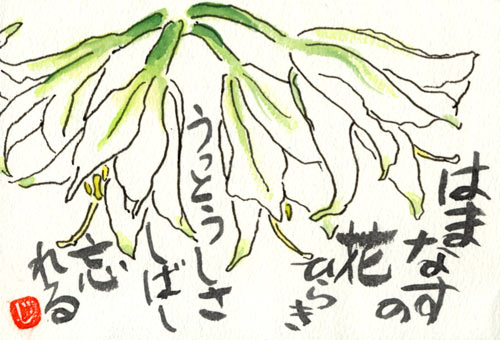 はまなすの
花
ひらき
うっとうしさ
しばし
忘
れる